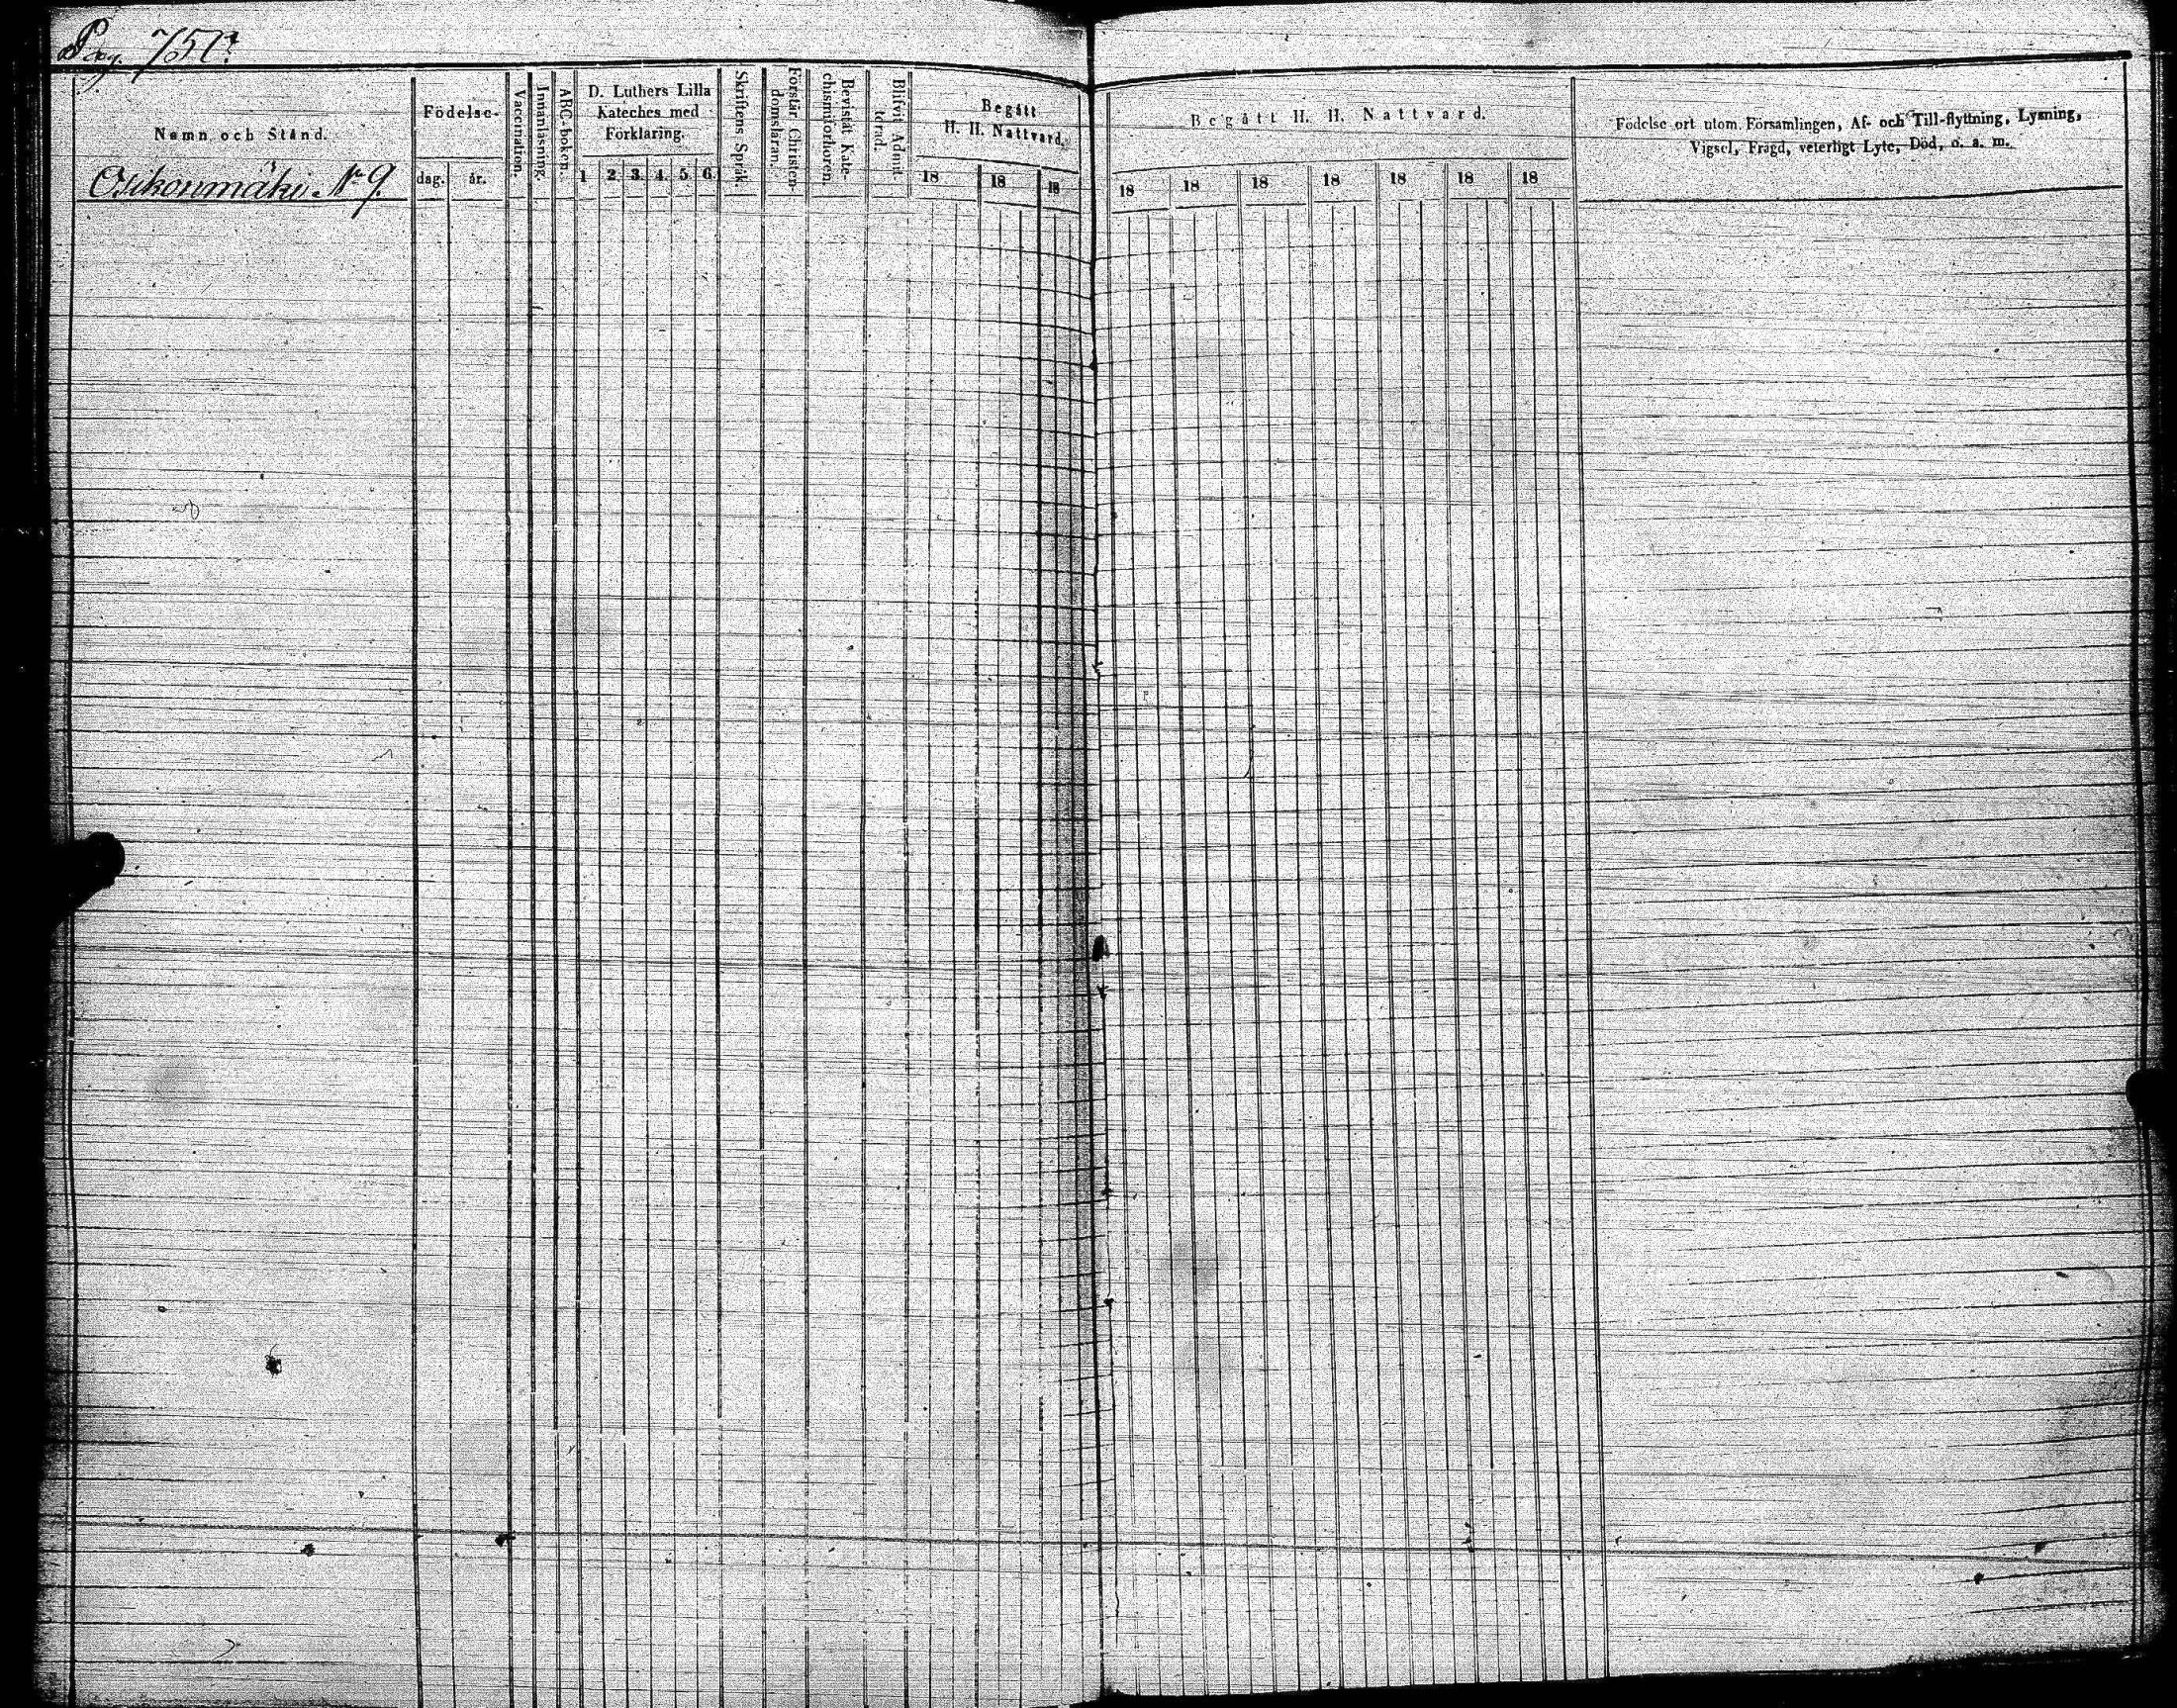 Pag. 757.
Namn och Stånd.
Osikonmäki. No 9.
Födelse-
dag. år.
Vaccination.
Innanläsning.
ABC-boken.
D. Luthers Lilla
Kateches med
Förklaring.
1 2. 3. 4. 5. 6.
Skriftens Språk.
Förstår Christen-
domsläran.
Bevistat Kate-
chismiförhören.
Blifvit Admit-
terad.
Begått
H. H. Nattvard.
18 18 18
Begått H. H. Nattvard.
18 18 18 18 18 18 18
Födelse ort utom Församlingen, Af- och Till-flyttning, Lysning,
Vigsel, Frägd, veterligt Lyte, Död, o. s. m.